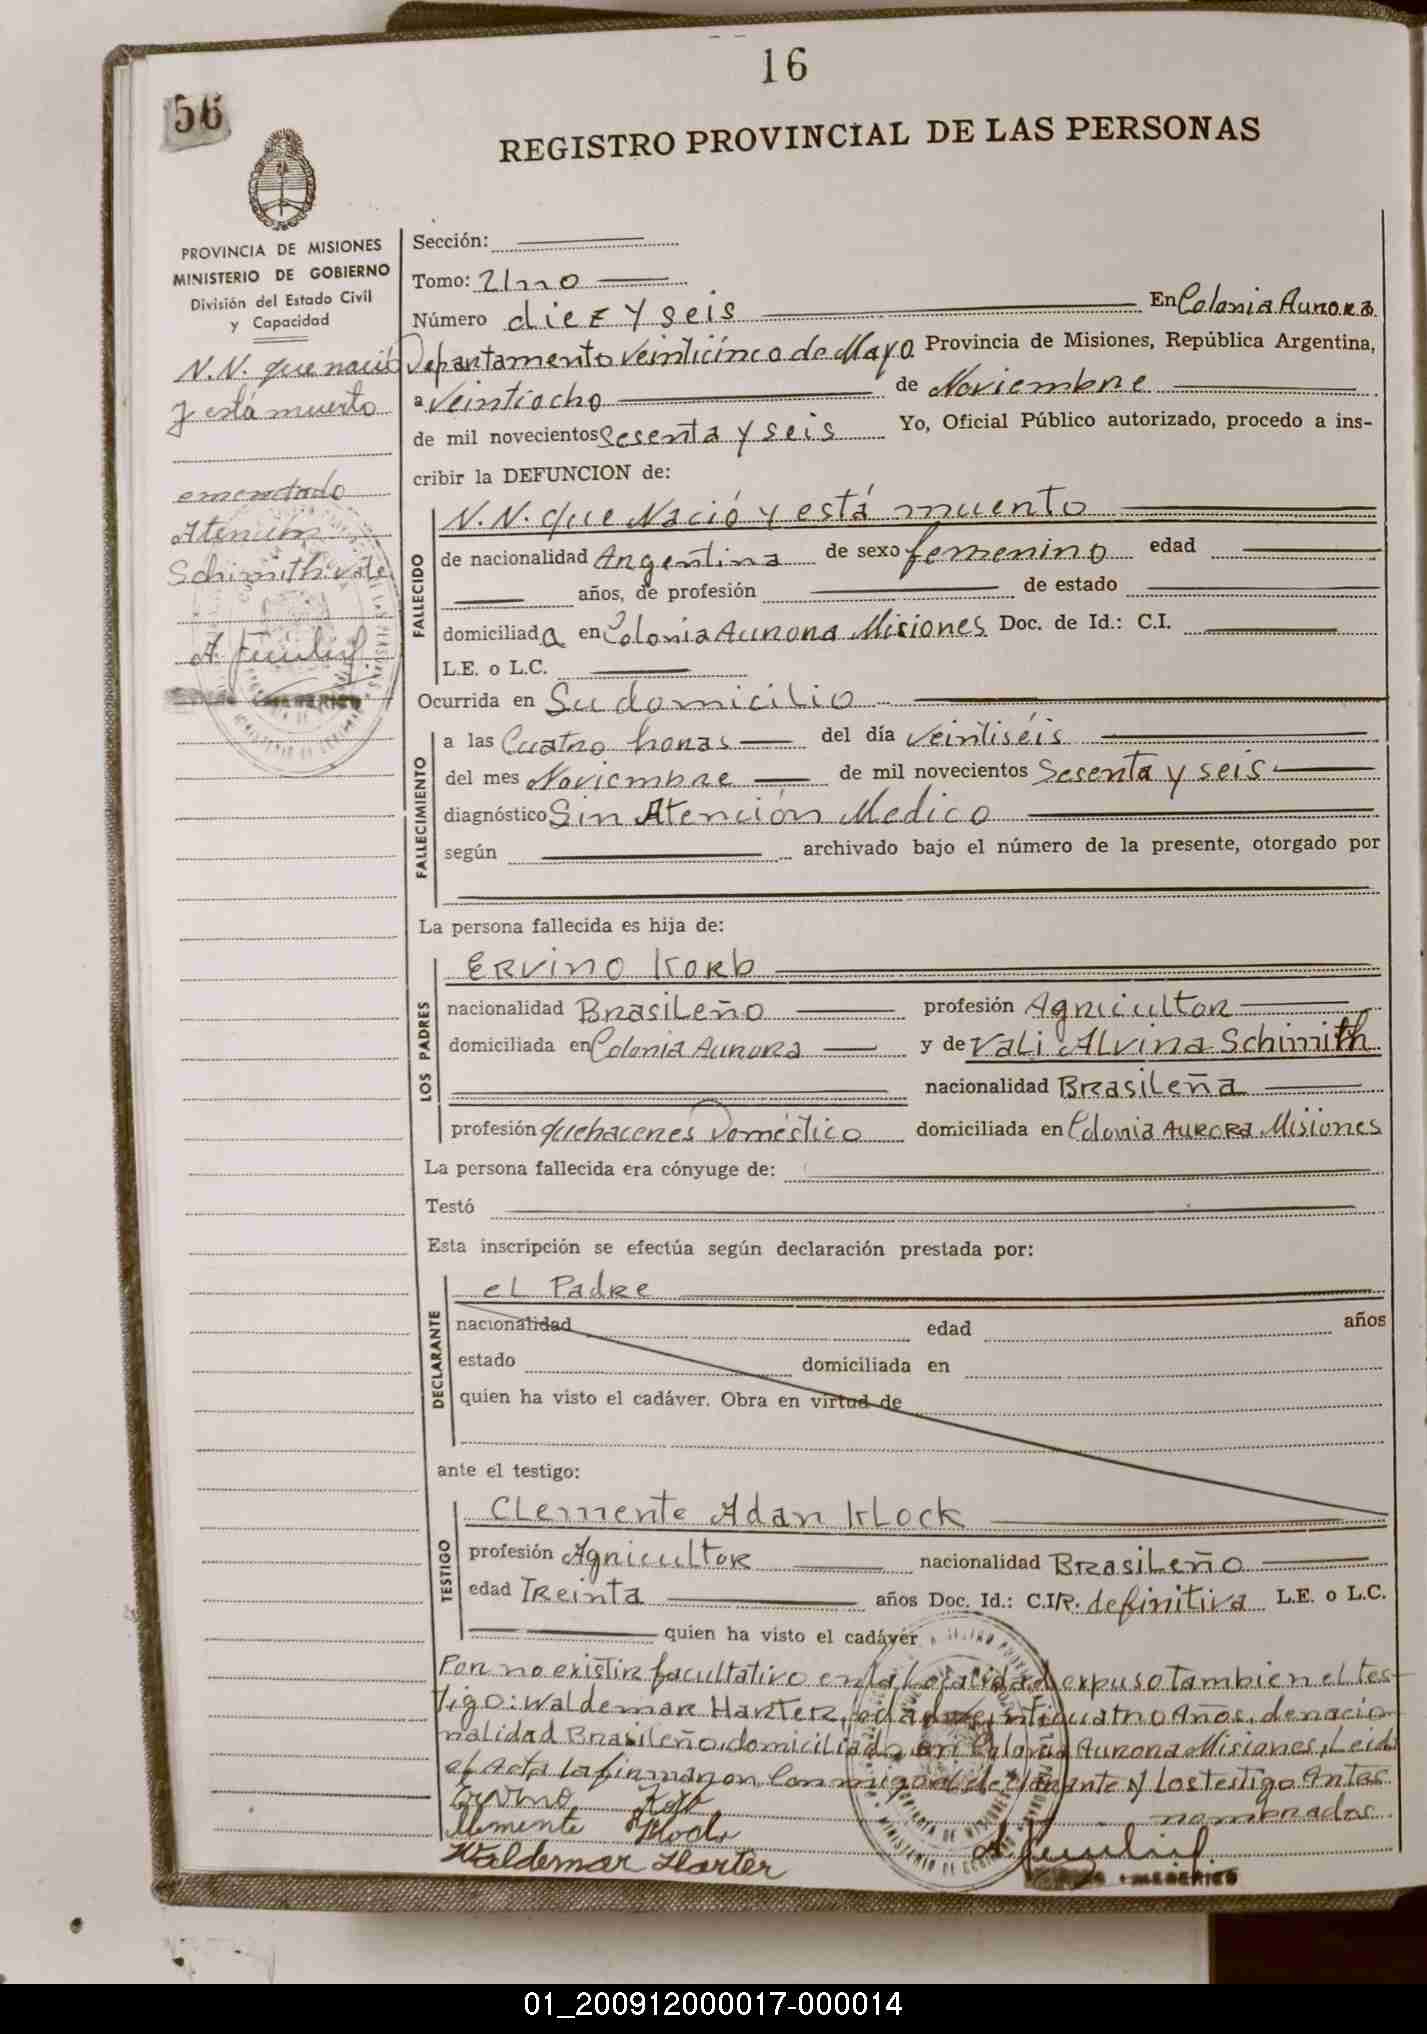 16
56
REGISTRO PROVINCIAL DE LAS PERSONAS
PROVINCIA DE MISIONES
MINISTERIO DE GOBIERNO
División del Estado Civil
y Capacidad
N.N. que nació
y está muerto
emendado
Atención
Schimith vale
Sección:
Tomo: Uno
Número diez y seis En Colonia Aurora
Departamento Veinticinco de Mayo Provincia de Misiones, República Argentina,
a Veintiocho de Noviembre
de mil novecientos Sesenta y seis Yo, Oficial Público autorizado, procedo a ins-
cribir la DEFUNCION de:
FALLECIDO
N.N. que Nació y está muento
de nacionalidad Argentina de sexo femenino edad
años, de profesión de estado
domiciliada en Colonia Aurora Misiones Doc. de Id.: C.I.
L.E. o L.C.
Ocurrida en Su domicilio
FALLECIMIENTO
a las Cuatro horas del día Veintiséis
del mes Noviembre de mil novecientos Sesenta y seis
diagnóstico Sin Atención Medico
según archivado bajo el número de la presente, otorgado por
La persona fallecida es hija de:
LOS PADRES
Ervino Korb
nacionalidad Brasileño profesión Agricultor
domiciliada en Colonia Aurora y de Vali Alvina Schimith
nacionalidad Brasileña
profesión quehaceres Doméstico domiciliada en Colonia Aurora Misiones
La persona fallecida era cónyuge de:
Testó
Esta inscripción se efectúa según declaración prestada por:
DECLARANTE
el Padre
nacionalidad edad años
estado domiciliada en
quien ha visto el cadáver. Obra en virtud de
ante el testigo:
TESTIGO
Clemente Adan Klock
profesión Agricultor nacionalidad Brasileño
edad Treinta años Doc. Id.: C.I R. definitiva L.E. o L.C.
quien ha visto el cadáver
Por no existir facultativo en la Localidad expuso tambien el tes-
tigo: Waldemar Harter, edad Veinticuatro Años, de nacio-
nalidad Brasileño, domiciliado en Colonia Aurora Misiones, Leid
el Acta la firmaron Conmigo el declarante y los testigo Antes
nombrados
Ervino Korb
Clemente Klock
Waldemar Harter
01_200912000017-000014